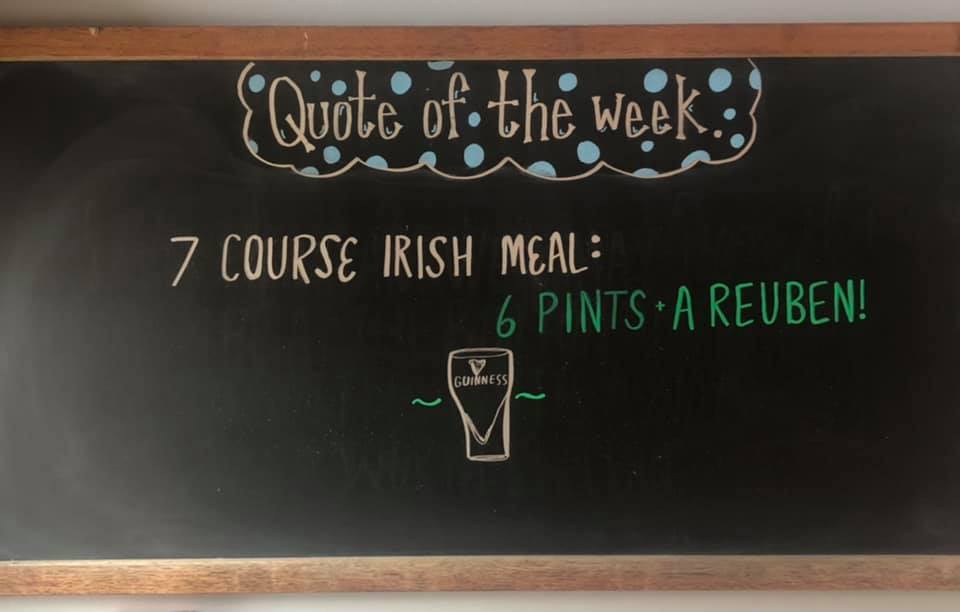 Quote of the week.
7 COURSE IRISH MEAL:
6 PINTS + A REUBEN!
GUINNESS